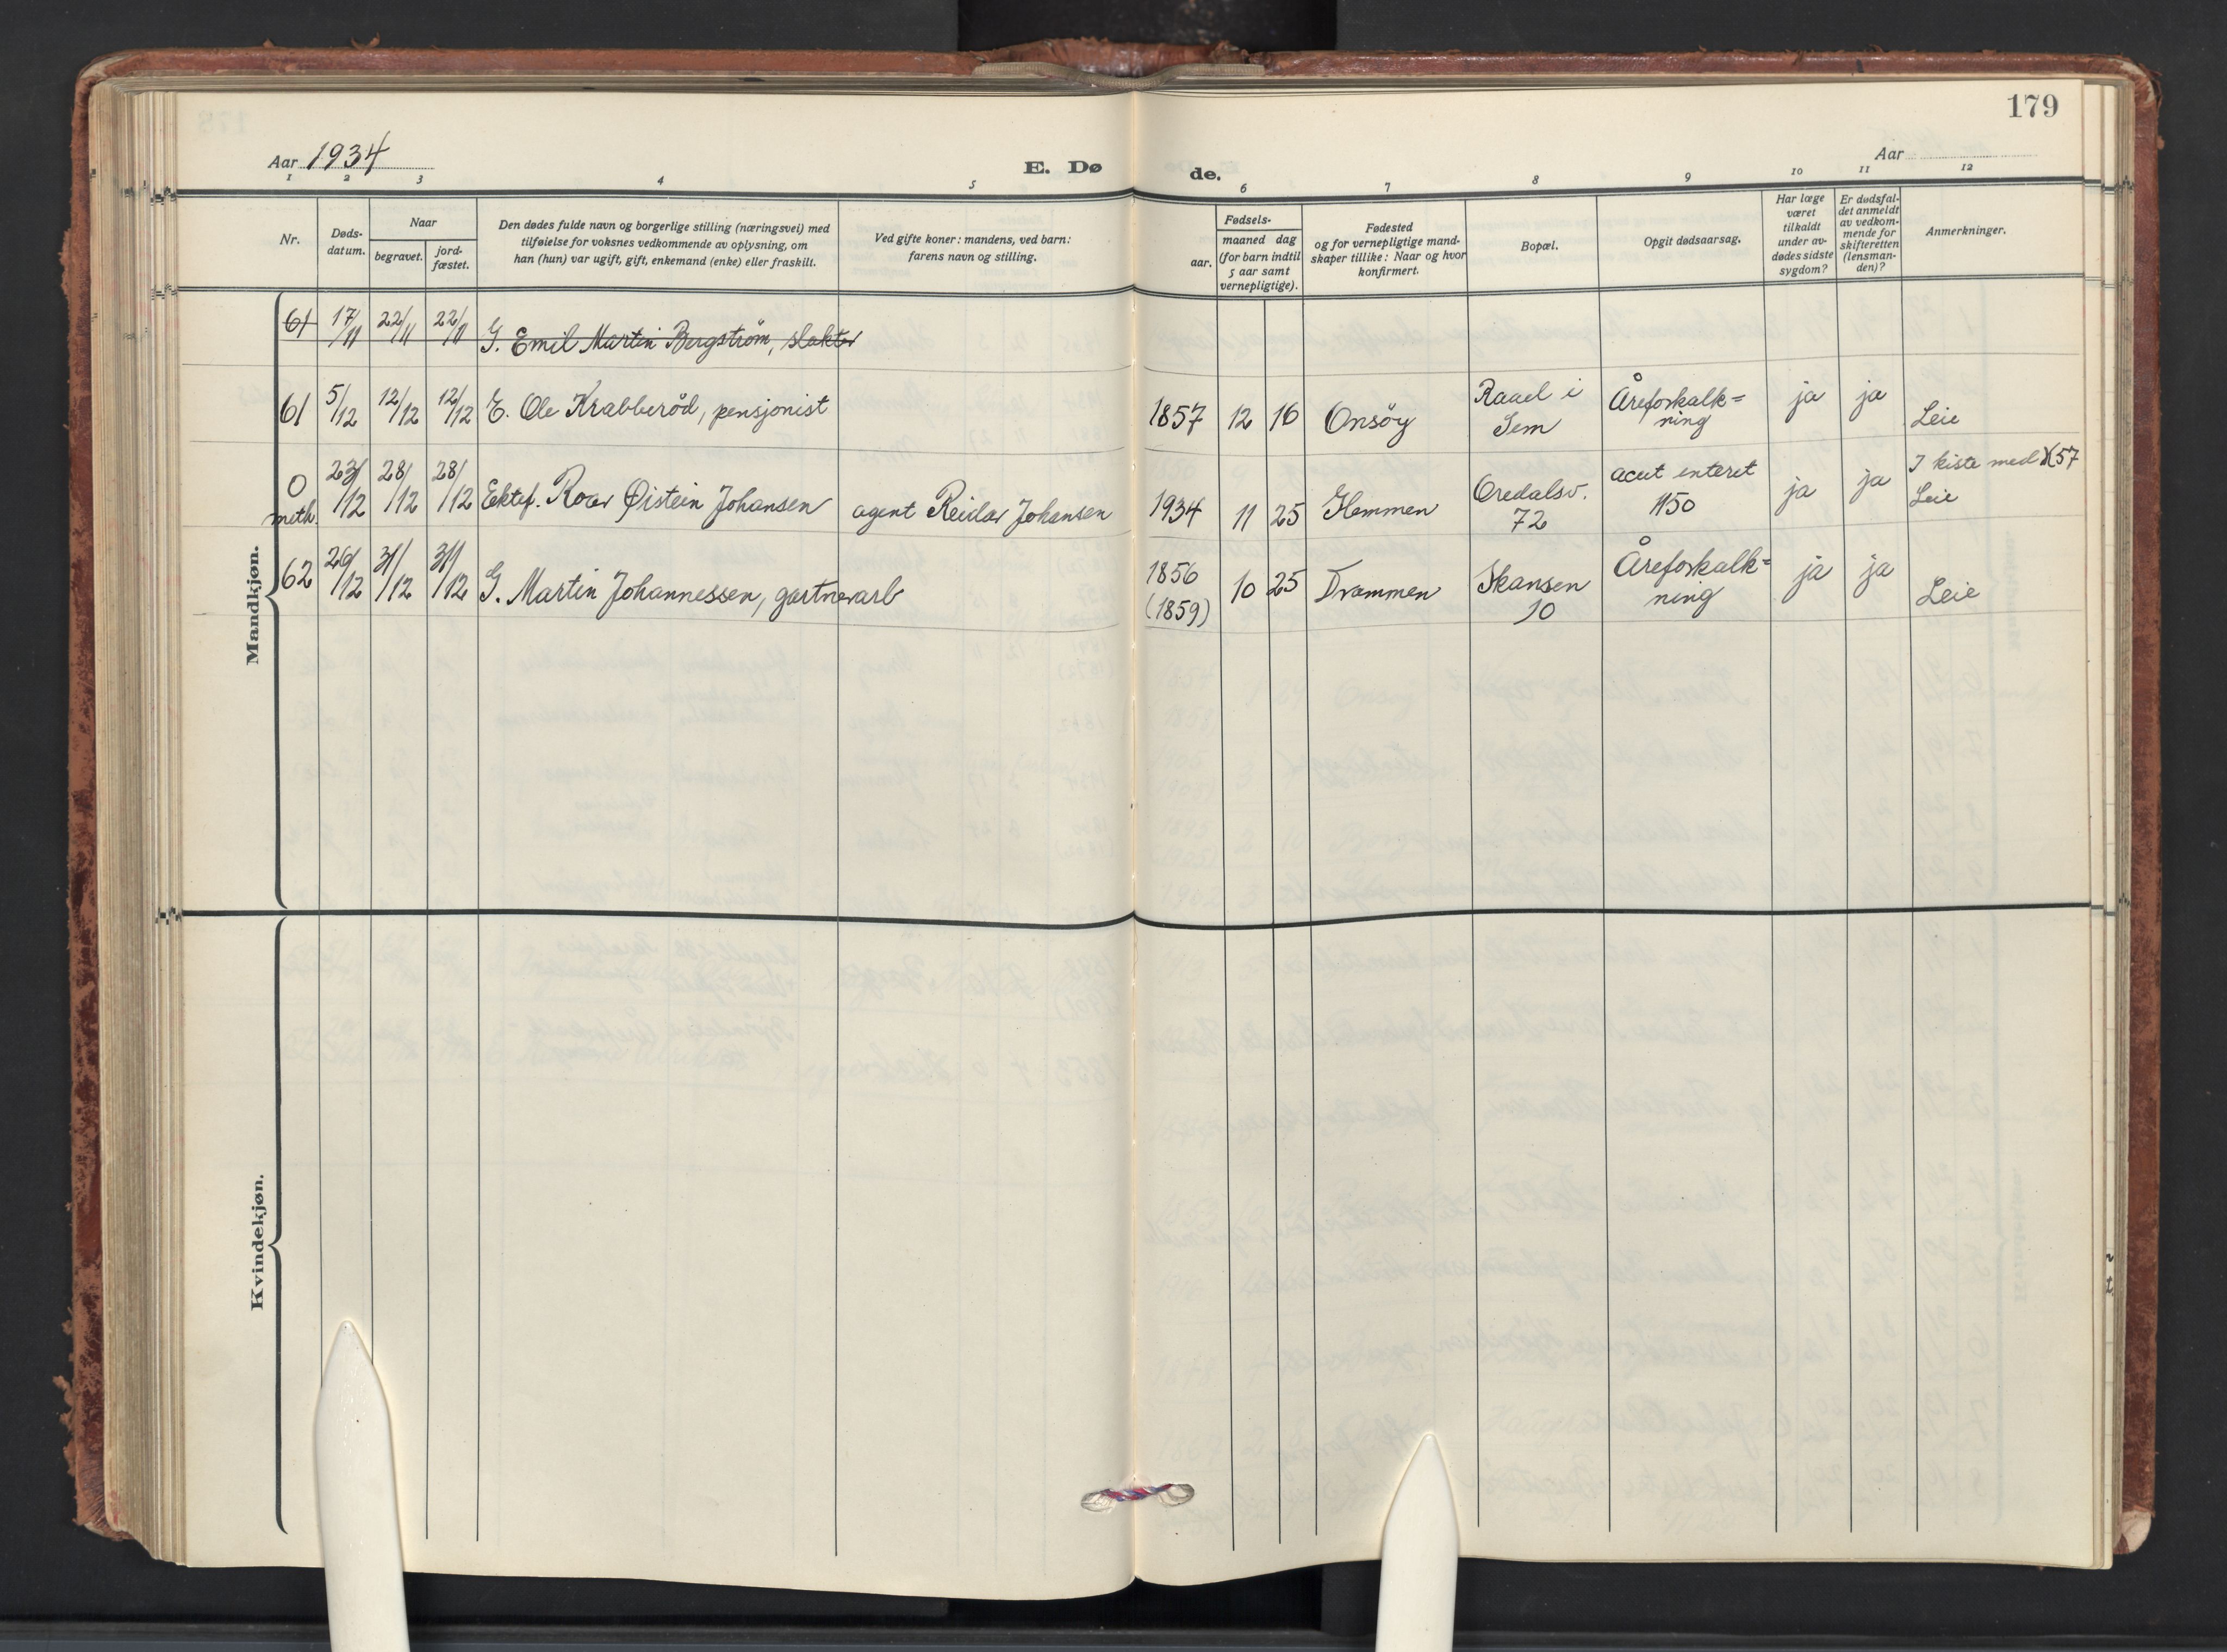 179
Aar 1934
E. Dø
de.
Aar
1 2 3 4 5 6 7 8 9 10 11 12
Nr.
Døds-
datum.
Naar
begravet.
jord-
fæstet.
Den dødes fulde navn og borgerlige stilling (næringsvei) med
tilføielse for voksnes vedkommende av oplysning, om
han (hun) var ugift, gift, enkemand (enke) eller fraskilt.
Ved gifte koner: mandens, ved barn:
farens navn og stilling.
Fødsels-
aar.
maaned dag
(for barn indtil
5 aar samt
vernepligtige).
Fødested
og for vernepligtige mand-
skaper tillike: Naar og hvor
konfirmert.
Bopæl.
Opgit dødsaarsag.
Har læge
været
tilkaldt
under av-
dødes sidste
sygdom?
Er dødsfal-
det anmeldt
av vedkom-
mende for
skifteretten
(lensman-
den)?
Anmerkninger.
Mandkjøn.
61 17/11 22/11 22/11 G. Emil Martin Bergström, slakter
61 5/12 12/12 12/12 E. Ole Krabberöd, pensjonist 1857 12 16 Onsöy Raael i Sem Åreforkalk=ning ja ja Leie
0 meth. 23/12 28/12 28/12 Ektef. Roar Øistein Johansen agent Reidar Johansen 1934 11 25 Glemmen Oredalsv. 72 acut enterit 1150 ja ja I kiste med K57 Leie
62 26/12 31/12 31/12 G. Martin Johannessen, gartnerarb 1856 (1859) 10 25 Drammen Skansen 10 Åreforkalk=ning ja ja Leie
Kvindekjøn.